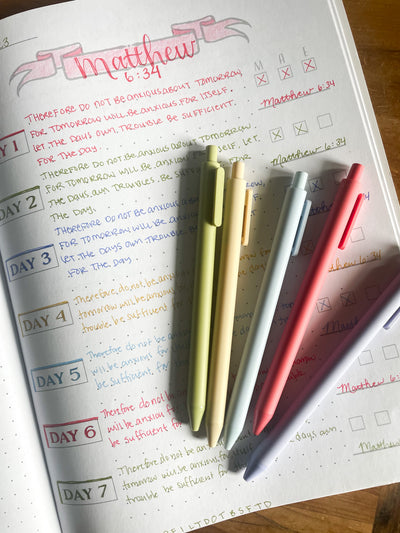 Matthew
6:34
M A E
DAY 1
THEREFORE DO NOT BE ANXIOUS ABOUT TOMORROW,
FOR TOMORROW WILL BE ANXIOUS FOR ITSELF.
LET THE DAYS OWN TROUBLE BE SUFFICIENT
FOR THE DAY.
Matthew 6:34
DAY 2
THEREFORE DO NOT BE ANXIOUS ABOUT TOMORROW
FOR TOMORROW WILL BE ANXIOUS LET
THE DAYS OWN TROUBLES. BE SUFF
THE DAY.
Matthew 6:34
DAY 3
THEREFORE DO NOT BE ANXIOUS
FOR TOMORROW WILL BE ANXIOUS
LET THE DAYS OWN TROUBLE
FOR THE DAY.
6:34
DAY 4
Therefore, do not be anxious
tomorrow will be anxious
trouble be sufficient
6:34
DAY 5
Therefore do not be
will be anxious for
be sufficient for
DAY 6
Therefore do not be
will be anxious
be sufficient for
Matthew 6:34
DAY 7
Therefore do not be an
tomorrow will be anxious for days own
trouble be sufficient for
Matthew